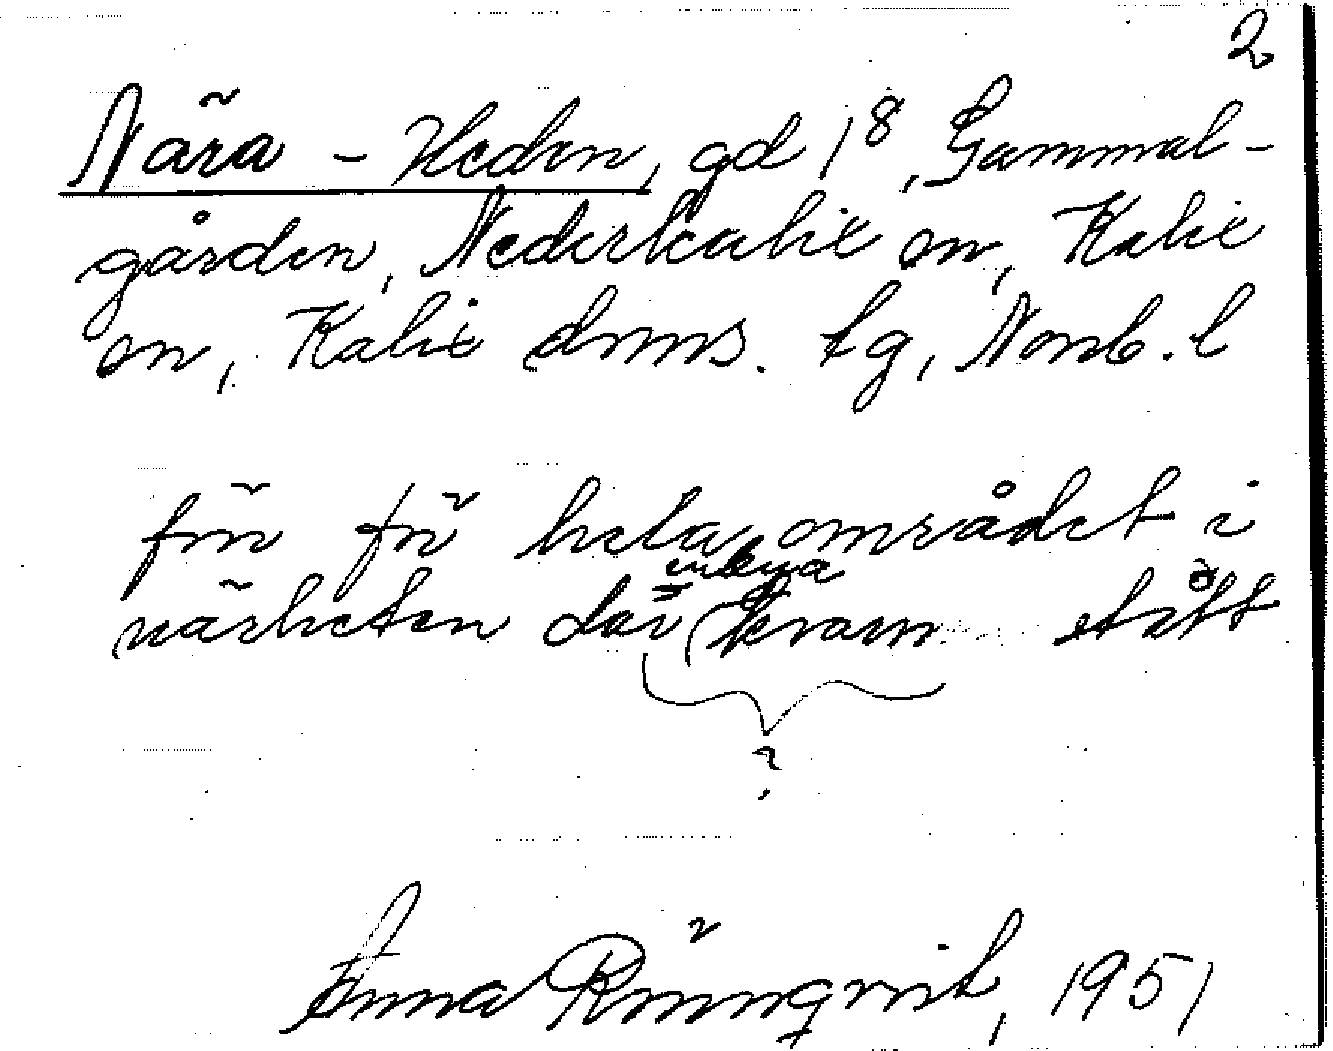 2
Nära-Heden, gd 1⁸, Gammal-
gården, Nederkalix sn, Kalix
sn, Kalix dmns. tg, Norrb. l
förr för hela området i
närheten där kvarn stått
?
Anna Rönnqvist, 1951